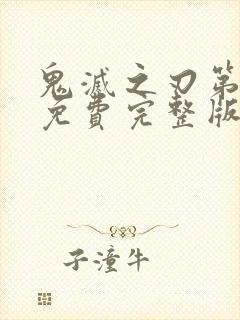 鬼滅之刃第
免費完整版
子潼牛